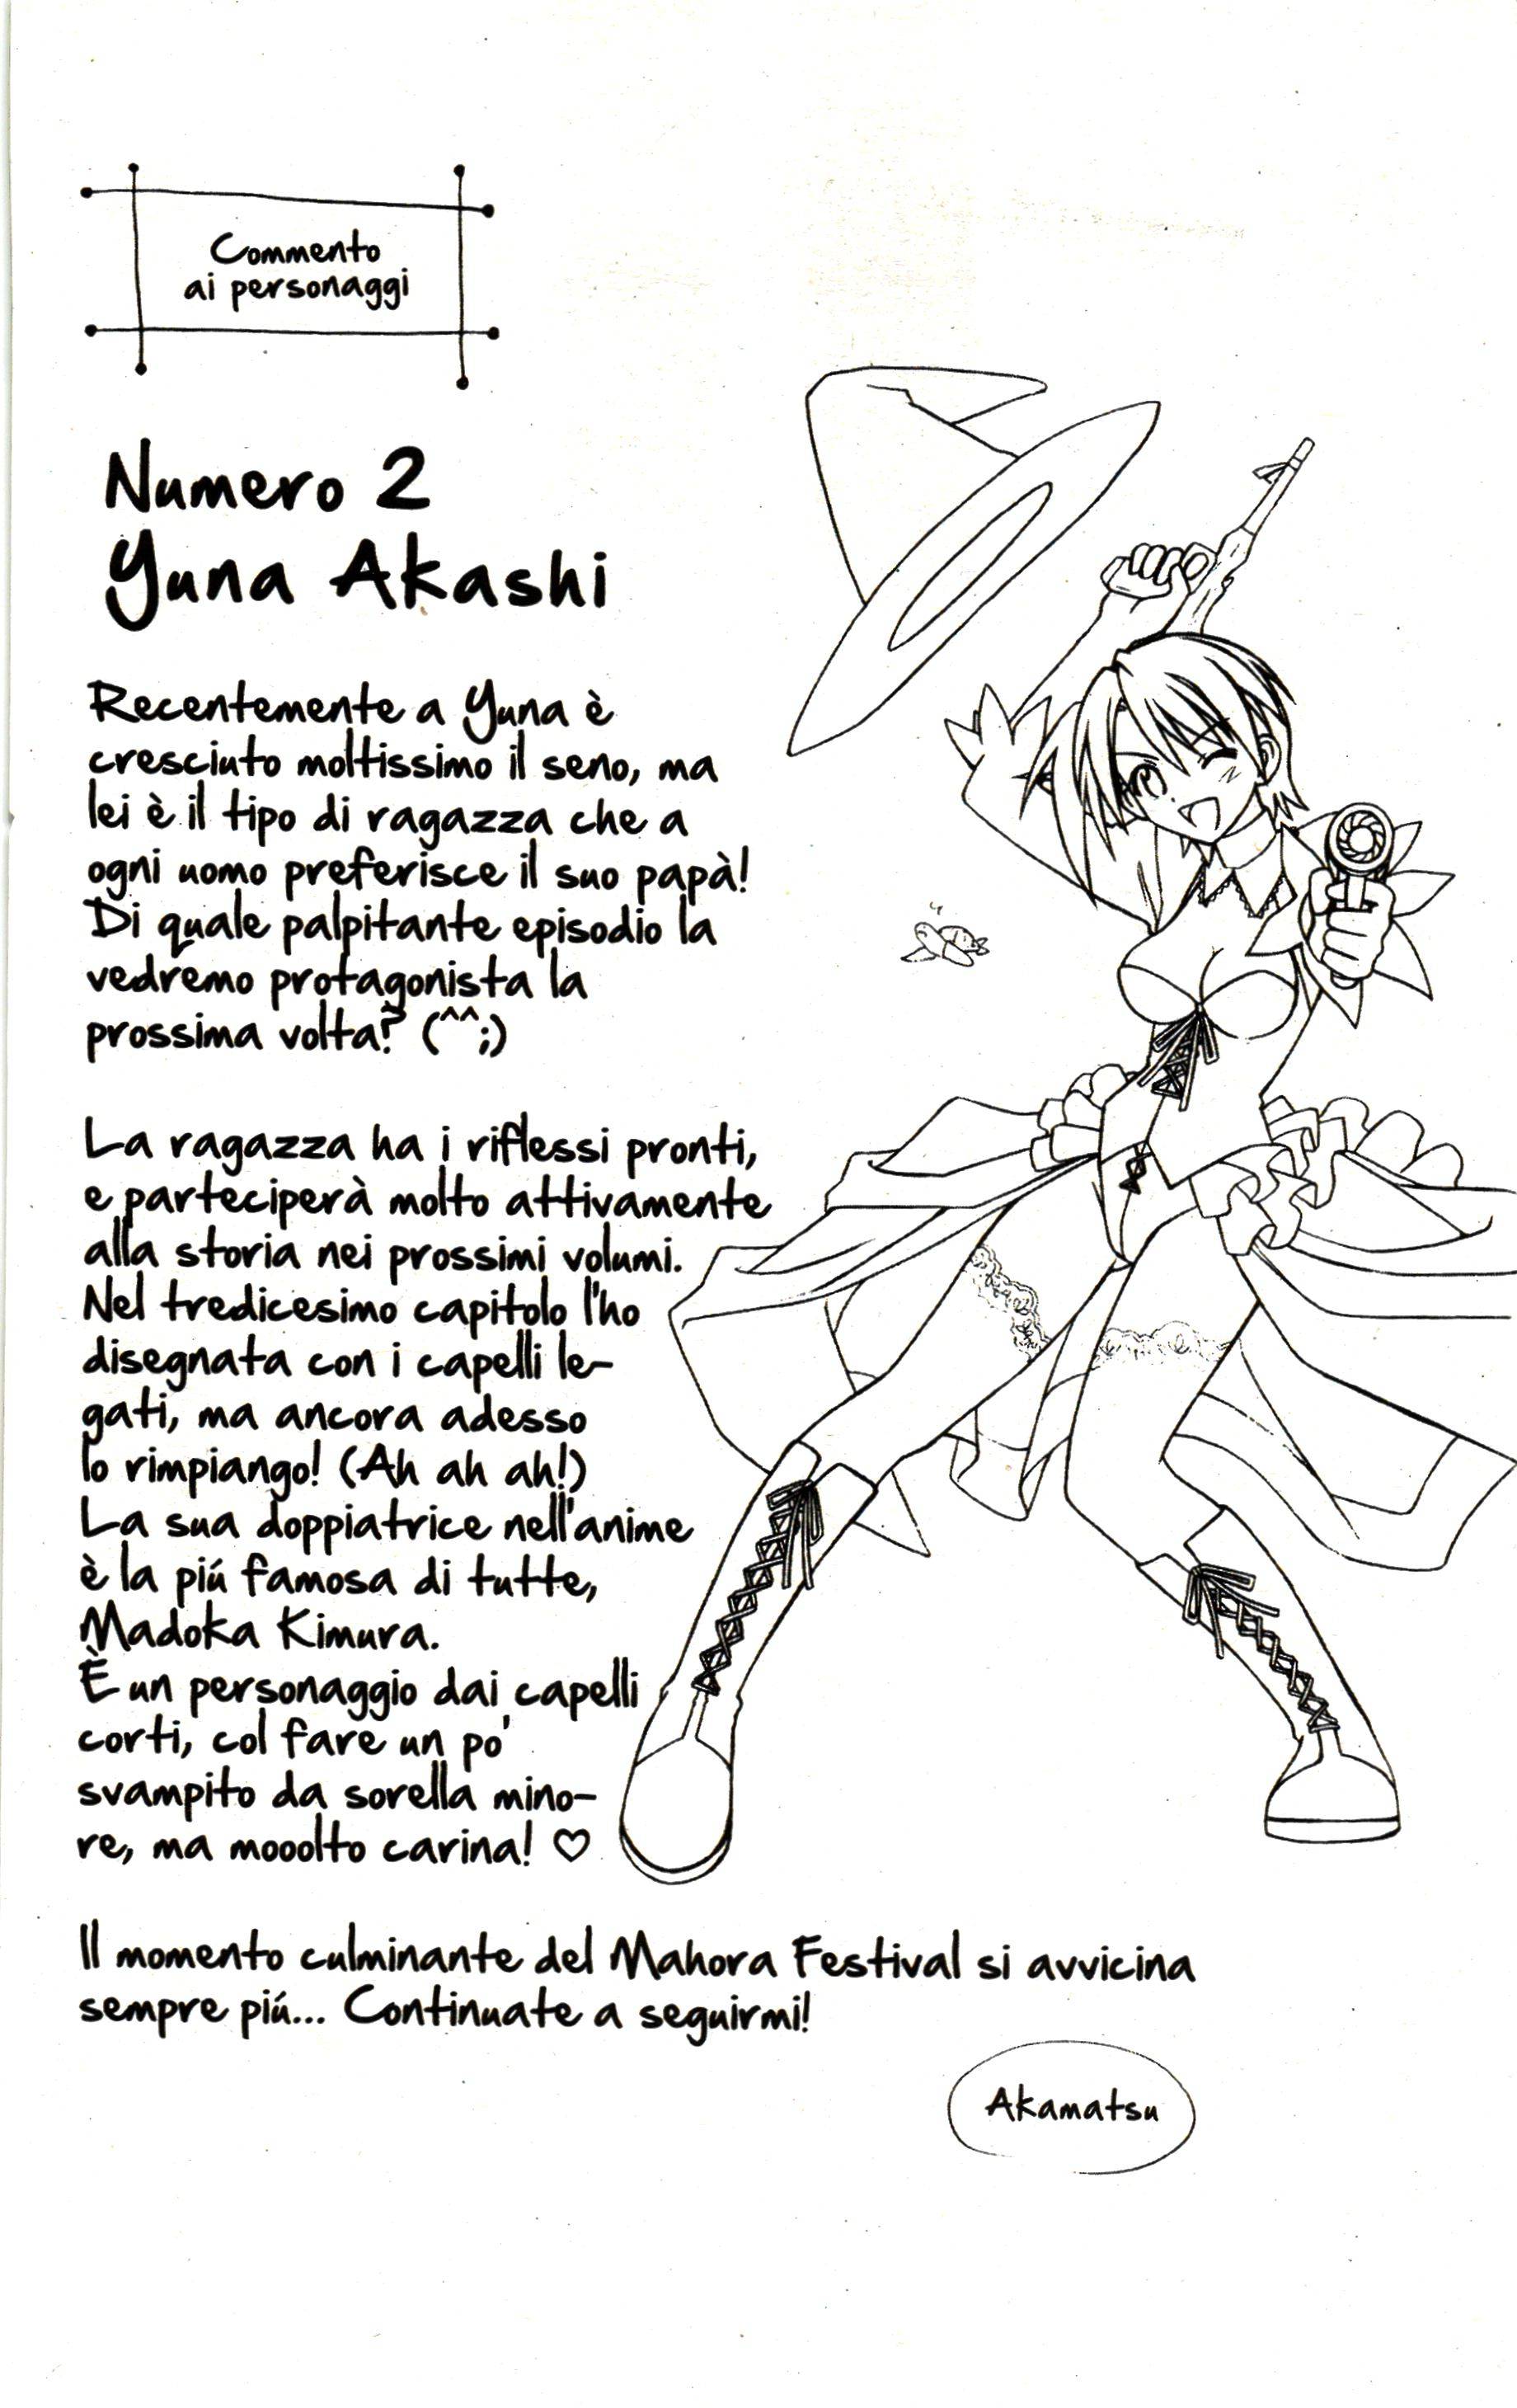 Commento
ai personaggi
Numero 2
Yuna Akashi
Recentemente a Yuna è
cresciuto moltissimo il seno, ma
lei è il tipo di ragazza che a
ogni uomo preferisce il suo papà!
Di quale palpitante episodio la
vedremo protagonista la
prossima volta? (^^;)
La ragazza ha i riflessi pronti,
e parteciperà molto attivamente
alla storia nei prossimi volumi.
Nel tredicesimo capitolo l'ho
disegnata con i capelli le-
gati, ma ancora adesso
lo rimpiango! (Ah ah ah!)
La sua doppiatrice nell'anime
è la piú famosa di tutte,
Madoka Kimura.
È un personaggio dai capelli
corti, col fare un po'
svampito da sorella mino-
re, ma mooolto carina! ♡
Il momento culminante del Mahora Festival si avvicina
sempre piú... Continuate a seguirmi!
Akamatsu